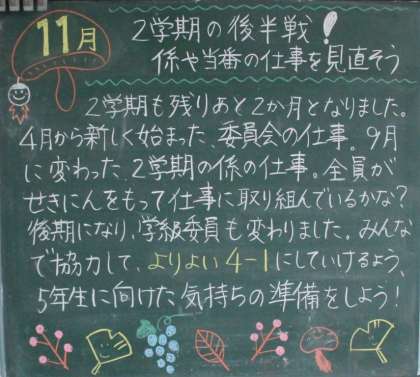 11月
2学期の後半戦!
係や当番の仕事を見直そう
2学期も残りあと2か月となりました。
4月から新しく始まった、委員会の仕事。9月
に変わった、2学期の係の仕事。全員が
せきにんをもって仕事に取り組んでいるかな?
後期になり、学級委員も変わりました。みんな
で協力して、よりよい4-1にしていけるよう、
5年生に向けた気持ちの準備をしよう!